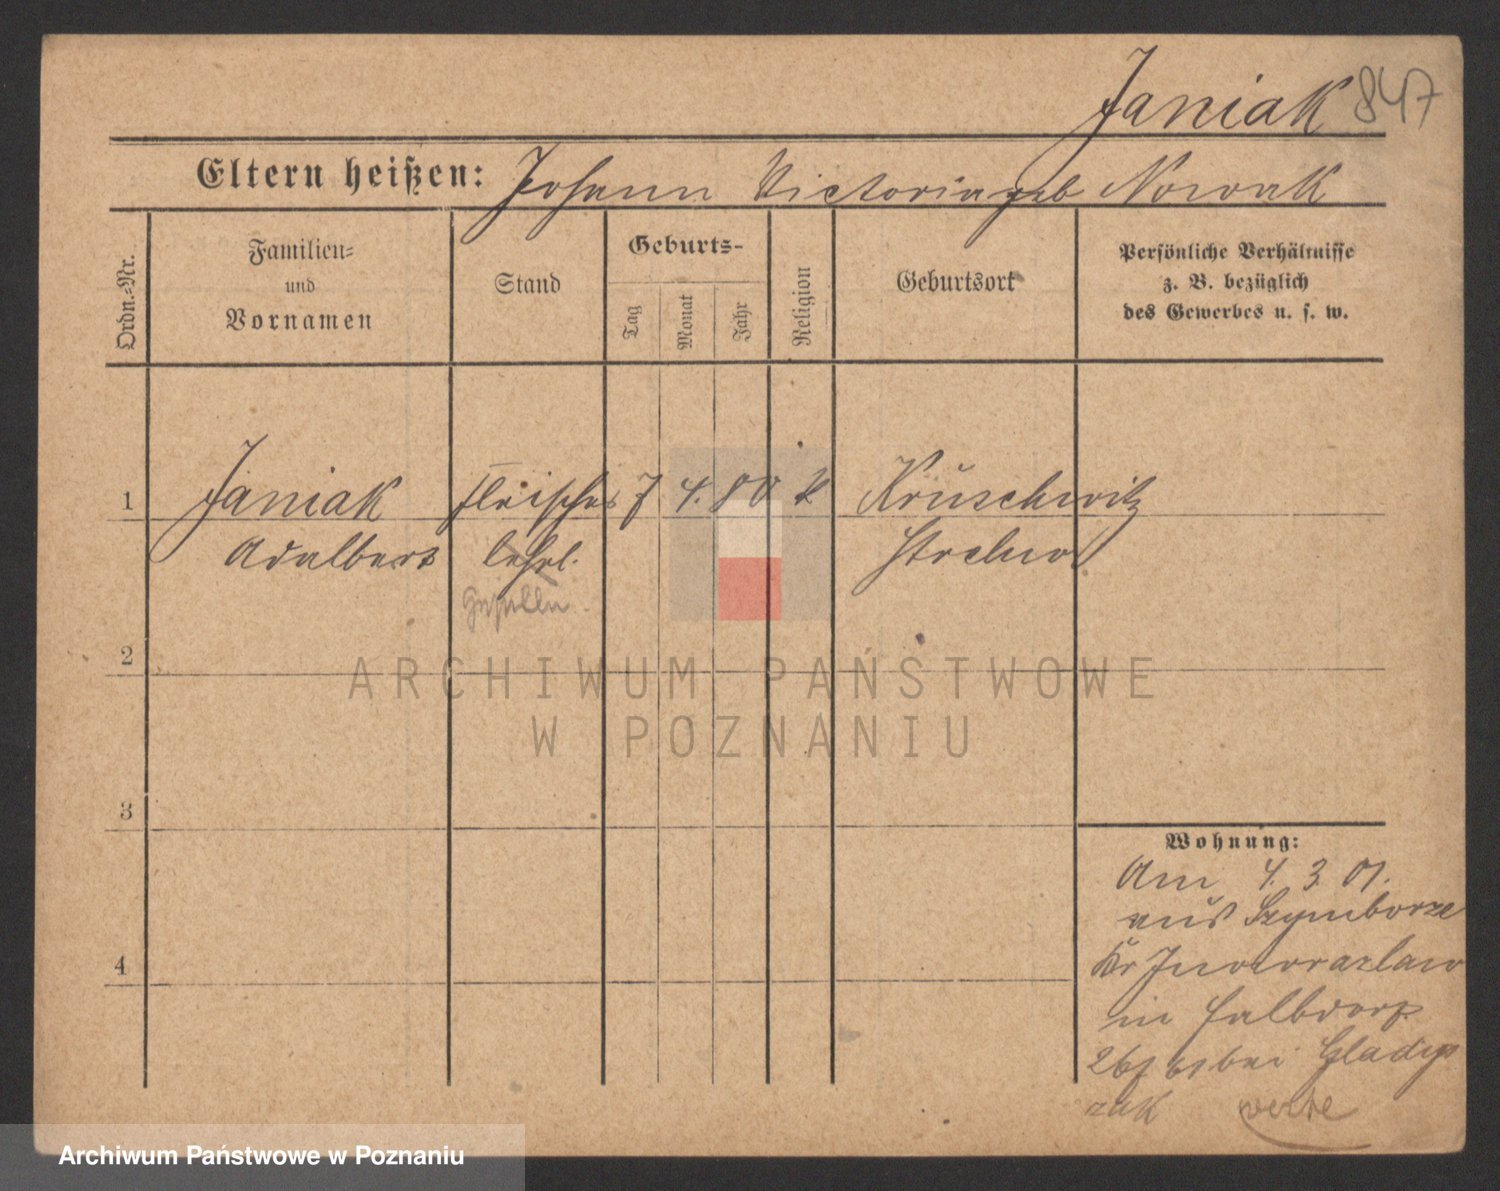 Janiak 847
Eltern heißen: Johann Victoria geb Nowak
Ordn.-Nr.
Familien-
und
Vornamen
Stand
Geburts-
Tag
Monat
Jahr
Religion
Geburtsort
Persönliche Verhältnisse
z. B. bezüglich
des Gewerbes u. s. w.
1 Janiak Fleischer 7 4. 80 k Kruschwitz
Adalbert lehrl. Strelno
Geselle
2
ARCHIWUM PAŃSTWOWE
W POZNANIU
3
Wohnung:
Am 4. 3 01.
aus Szymborze
4
Kr Inowrazlaw
in Halbdorf
bei Gladys
zak
Archiwum Państwowe w Poznaniu